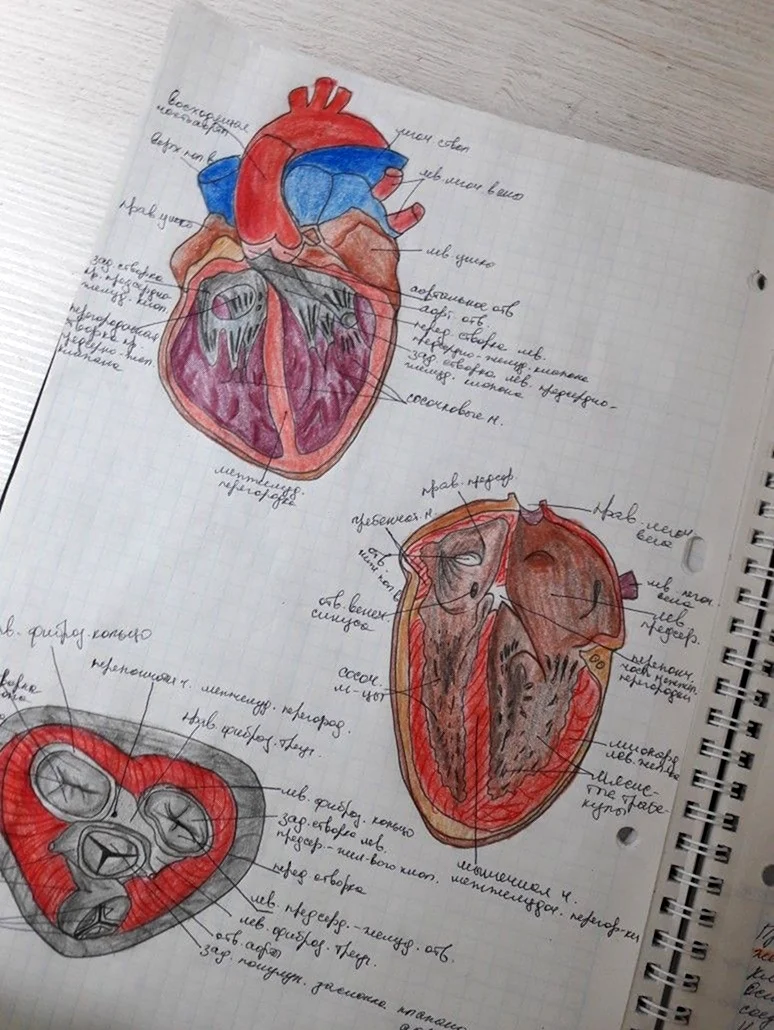 восходящая
часть аорты
верх. пол. в.
прав. ушко
зад. створка
пр. предсердно-
желуд. клап.
перегородочная
створка пр.
предсердно-жел.
клапана
межжелуд.
перегородка
лёгоч. ствол
лев. легоч. вены
лев. ушко
аортальное отв.
аорт. отв.
перед. створка лев.
предсердно-желуд. клапана
зад. створка лев. предсердно-
желуд. клапана
сосочковые м.
прав. предсер.
гребенчат. м.
отв.
ниж. пол. в.
отв. венеч.
синуса
сосоч.
м-цы
прав. легоч.
вена
лев. легоч.
вена
лев.
предсер.
перепонч.
часть межжел.
перегородки
миокард
лев. жел-ка
мясис-
тые трабе-
кулы
мышечная ч.
межжелудоч. перегор-ки
в. фиброз. кольцо
перепончатая ч. межжелуд. перегород.
прав. фиброз. треуг.
лев. фиброз. кольцо
зад. створка лев.
предсер.-жел-вого клап.
перед. створка
лев. предсерд.-желуд. отв.
лев. фиброз. треуг.
отв. аорты
зад. полулун. заслонка клапана